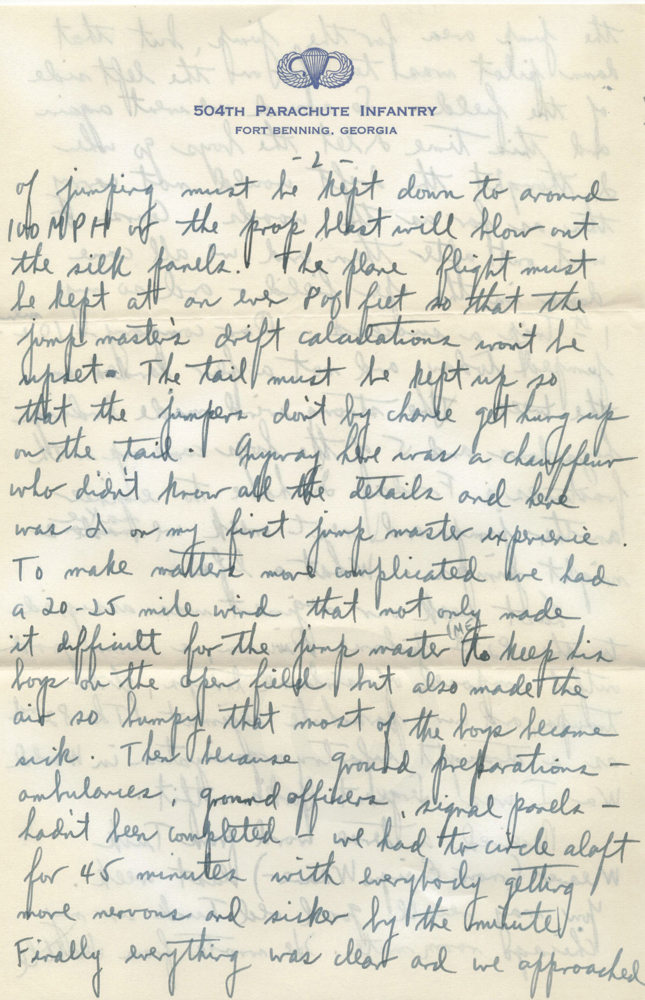 504TH PARACHUTE INFANTRY
FORT BENNING, GEORGIA
- 2 -
of jumping must be kept down to around
100 MPH or the prop blast will blow out
the silk panels. The plane flight must
be kept at an even 800 feet so that the
jump master's drift calculations won't be
upset. The tail must be kept up so
that the jumpers don't by chance get hung up
on the tail. Anyway here was a chauffeur
who didn't know all the details and here
was I on my first jump master experience.
To make matters more complicated we had
a 20-25 mile wind that not only made
it difficult for the jump master (ME) to keep his
boys on the open field, but also made the
air so bumpy that most of the boys became
sick. Then because ground preparations -
ambulances, ground officers, signal panels -
hadn't been completed - we had to circle aloft
for 45 minutes with everybody getting
more nervous and sicker by the minute.
Finally everything was clear and we approached